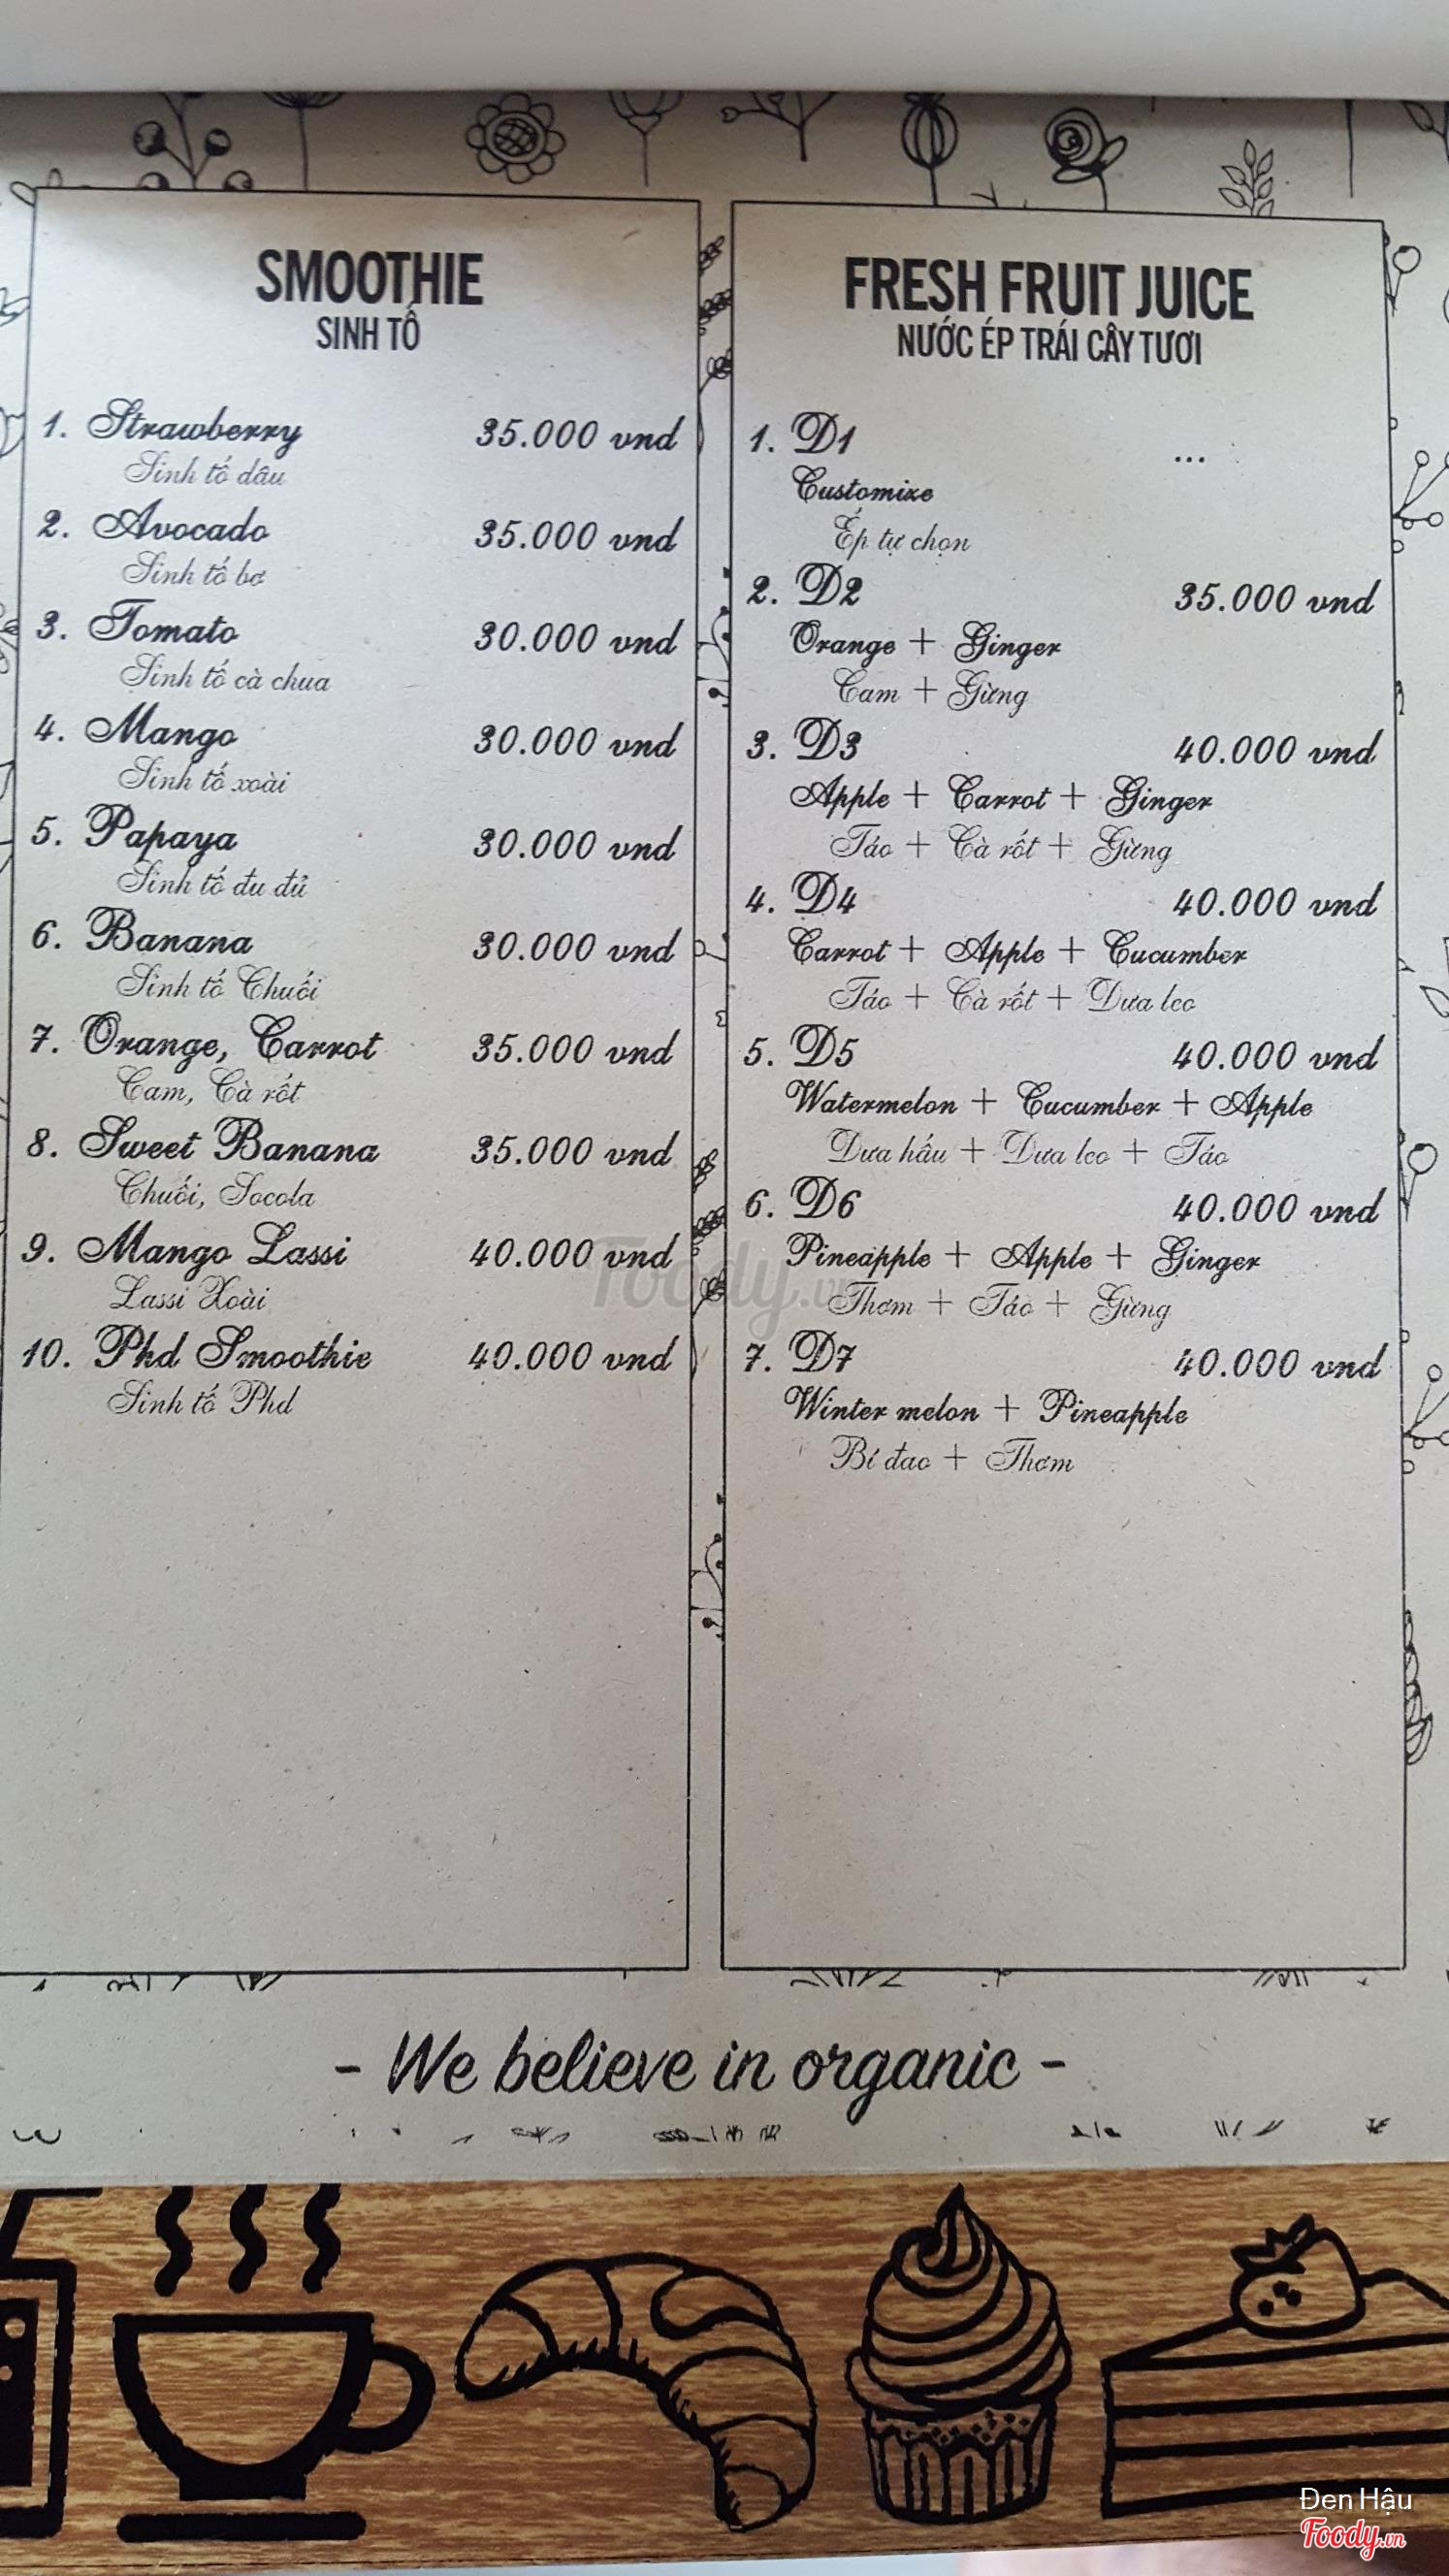 SMOOTHIE
SINH TỐ
1. Strawberry 35.000 vnd
Sinh tố dâu
2. Avocado 35.000 vnd
Sinh tố bơ
3. Tomato 30.000 vnd
Sinh tố cà chua
4. Mango 30.000 vnd
Sinh tố xoài
5. Papaya 30.000 vnd
Sinh tố đu đủ
6. Banana 30.000 vnd
Sinh tố Chuối
7. Orange, Carrot 35.000 vnd
Cam, Cà rốt
8. Sweet Banana 35.000 vnd
Chuối, Socola
9. Mango Lassi 40.000 vnd
Lassi Xoài
10. Phd Smoothie 40.000 vnd
Sinh tố Phd
FRESH FRUIT JUICE
NƯỚC ÉP TRÁI CÂY TƯƠI
1. D1 ...
Customize
Ép tự chọn
2. D2 35.000 vnd
Orange + Ginger
Cam + Gừng
3. D3 40.000 vnd
Apple + Carrot + Ginger
Táo + Cà rốt + Gừng
4. D4 40.000 vnd
Carrot + Apple + Cucumber
Táo + Cà rốt + Dưa leo
5. D5 40.000 vnd
Watermelon + Cucumber + Apple
Dưa hấu + Dưa leo + Táo
6. D6 40.000 vnd
Pineapple + Apple + Ginger
Thơm + Táo + Gừng
7. D7 40.000 vnd
Winter melon + Pineapple
Bí đao + Thơm
Foody.vn
- We believe in organic -
Đen Hậu
Foody.vn